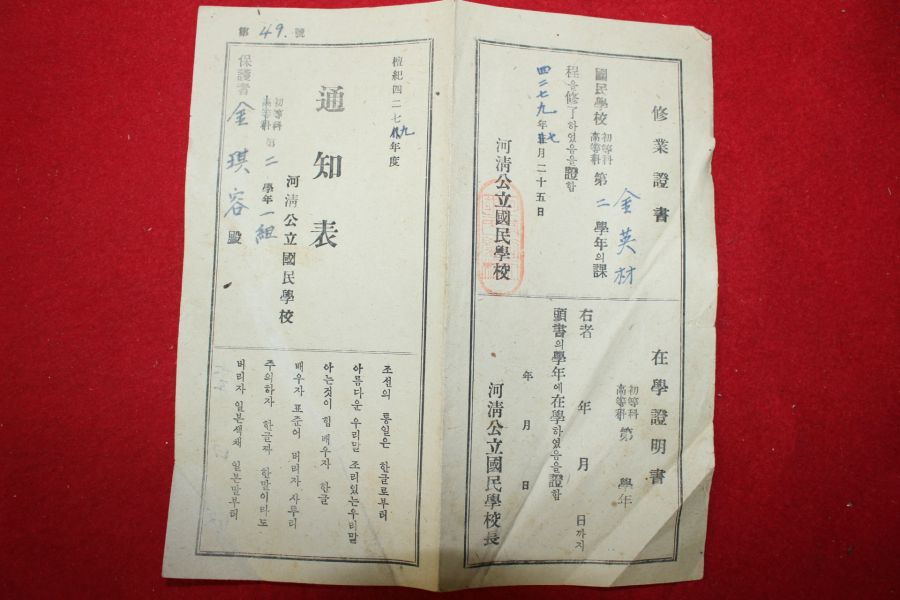 修業證書
金英材
國民學校 初等科 高等科 第二學年의課
程을修了하였음을證함
四二七九年七月二十五日
河淸公立國民學校
在學證明書
初等科 高等科 第 學年
右者 年 月 日까지
頭書의學年에在學하였음을證함
年 月 日
河淸公立國民學校長
檀紀四二七九年度
通知表
河淸公立國民學校
初等科 高等科 第二學年一組
保護者 金琪容 殿
第49.號
조선의 통일은 한글로부터
아름다운 우리말 조리있는우리말
아는것이 힘 배우자 한글
배우자 표준어 버리자 사투리
주의하자 한글짜 한말이라도
버리자 일본색채 일본말부터